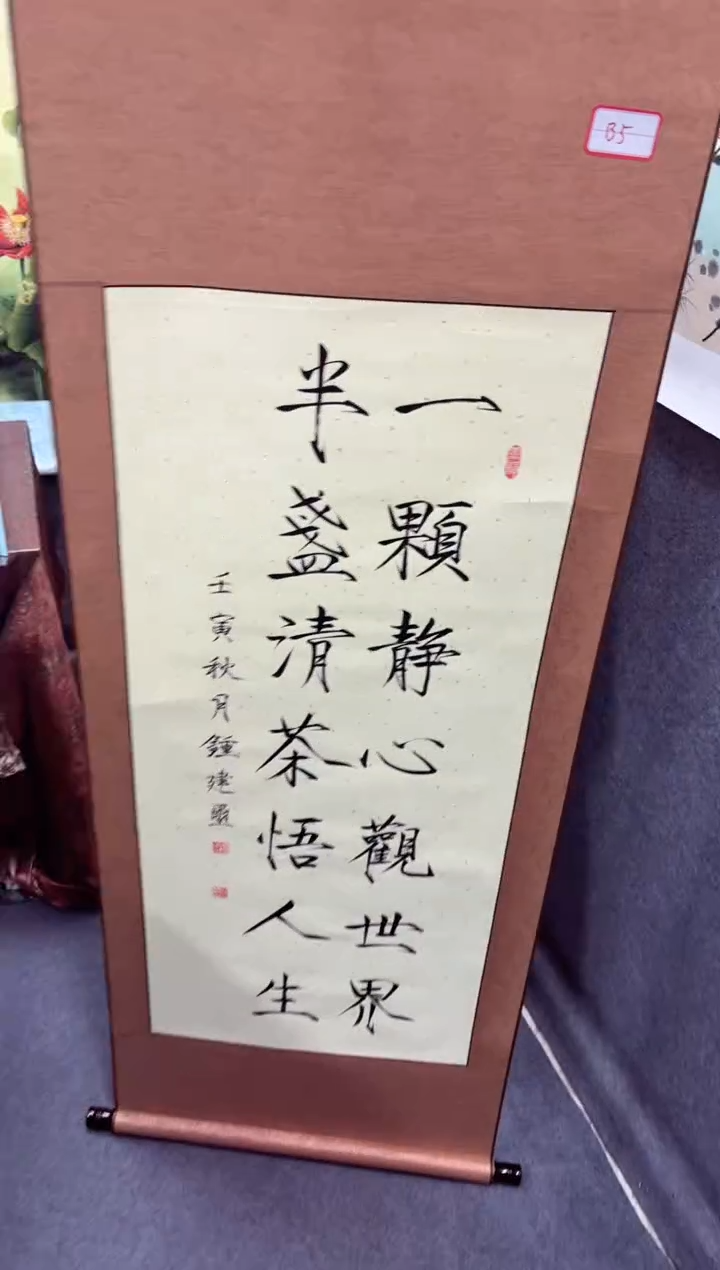 B5
一顆静心觀世界
半盏清茶悟人生
壬寅秋月鍾建